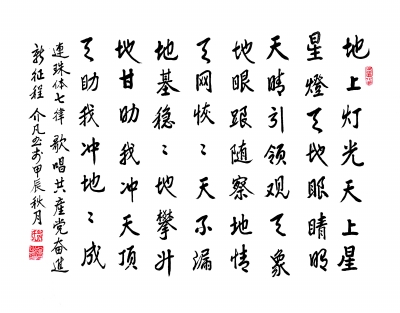 地上灯光天上星
星燈天地眼睛明
天晴引领观天象
地眼跟随察地情
天网恢〻天不漏
地基稳〻地攀升
地甘助我冲天顶
天助我冲地〻成
連珠体七律 歌唱共產党奋進
新征程 介凡书於甲辰秋月